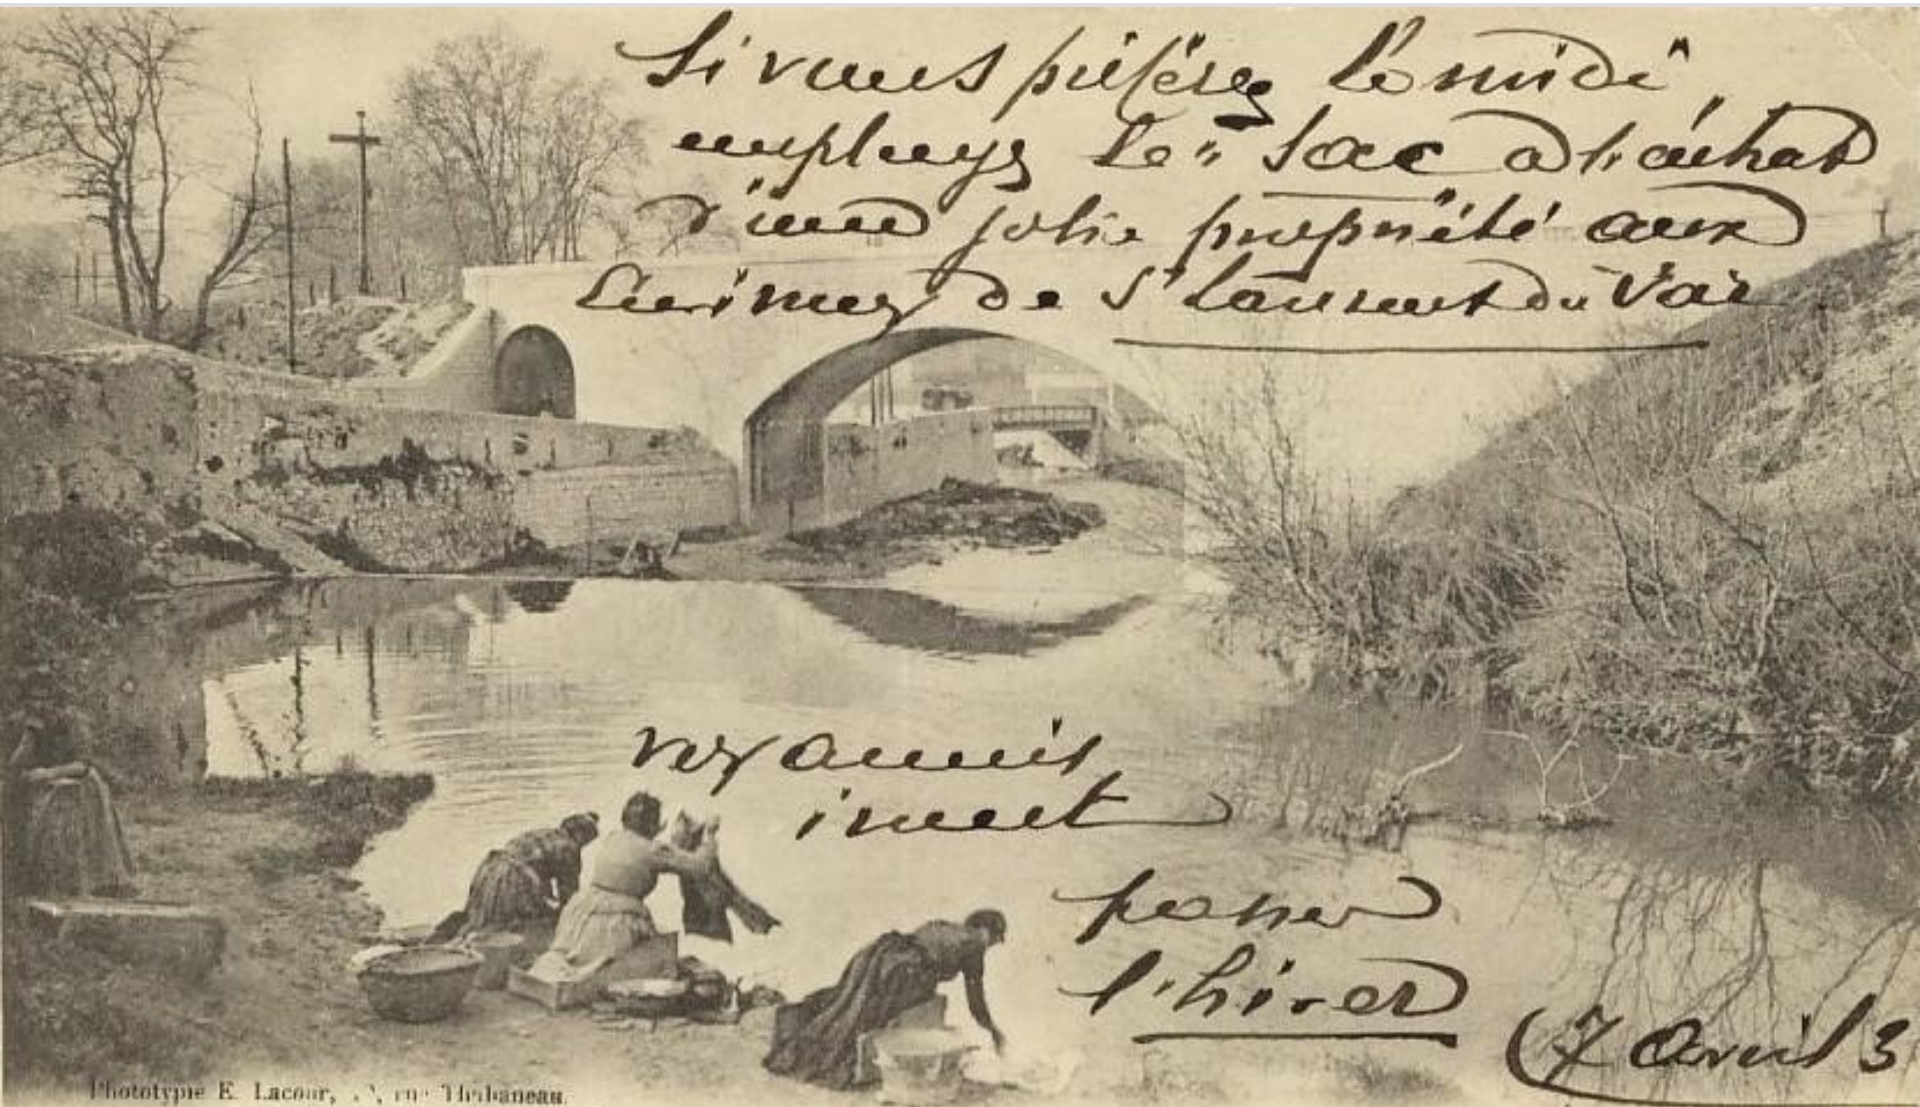 Si vous préférez le midi,
employez le " sac à l'achat
d'une jolie propriété aux
de St Laurent du Var.
vos amis
iront
passer
l'hiver
(7 avril 3
Phototypie E. Lacour, rue Thubaneau.